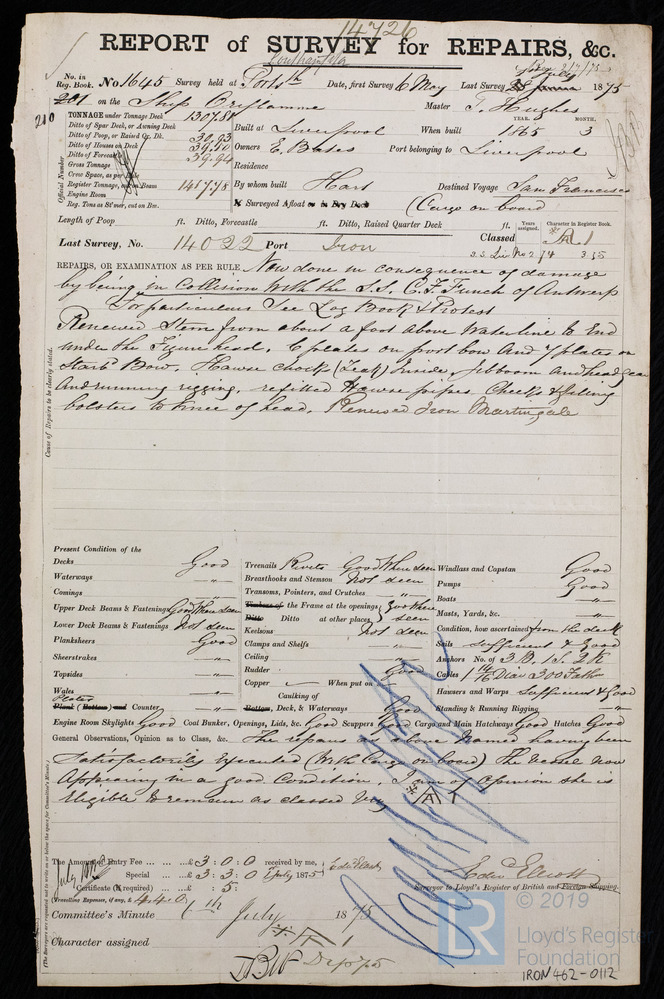 14726
REPORT of SURVEY for REPAIRS, &c.
Southampton
No. in Reg. Book. No 1645 Survey held at Portsth Date, first Survey 6 May Last Survey July 1875
201 on the Ship Oriflamme Master T. Hughes
210
TONNAGE under Tonnage Deck 1307.81
Ditto of Spar Deck, or Awning Deck
Ditto of Poop, or Raised Qr. Dk. 30.93
Ditto of Houses on Deck 39.50
Ditto of Forecastle 39.94
Gross Tonnage
Crew Space, as per Rule
Register Tonnage, cut on Beam 1417.78
Engine Room
Reg. Tons as St'mer, cut on Bm.
Official Number
YEAR. MONTH.
Built at Liverpool When built 1865 3
Owners E. Bates Port belonging to Liverpool
Residence
By whom built Hart Destined Voyage San Francisco
Surveyed Afloat or in Dry Dock (Cargo on board
Length of Poop ft. Ditto, Forecastle ft. Ditto, Raised Quarter Deck ft. Years assigned. Character in Register Book.
Last Survey, No. 14022 Port Iron Classed A 1
S.S. Liv No 2 74
REPAIRS, OR EXAMINATION AS PER RULE, Now done in consequence of damage
by being in Collision with the S.S. C.F. Funch of Antwerp
For particulars See Log Book & Protest
Renewed Stem from about a foot above Waterline to End
under the Figure head, 6 plates on port bow and 7 plates on
Starb Bow. Hawse chocks (Teak) inside, jibboom and head gear
and running rigging, refitted Hawse pipes, Cheeks & filling
bolsters to Knee of head. Renewed Iron Martingale
Cause of Repairs to be clearly stated.
Present Condition of the
Decks Good
Waterways "
Comings "
Upper Deck Beams & Fastenings Good When seen
Lower Deck Beams & Fastenings Not seen
Planksheers Good
Sheerstrakes "
Topsides "
Wales "
Plates
Plank (Bottom) and Counter "
Treenails Rivets Good When seen
Breasthooks and Stemson Not seen
Transoms, Pointers, and Crutches "
Timbers of the Frame at the openings Good When
Ditto Ditto at other places seen
Keelsons Not seen
Clamps and Shelfs "
Ceiling "
Rudder Good
Copper When put on
Caulking of
Bottom, Deck, & Waterways Good
Windlass and Capstan Good
Pumps Good
Boats "
Masts, Yards, &c. "
Condition, how ascertained from the deck
Sails Sufficient & Good
Anchors No. of 3 B. 1 S. 2 K
Cables 1 14/16 Diar 300 Faths
Hawsers and Warps Sufficient & Good
Standing & Running Rigging "
Engine Room Skylights Good Coal Bunker, Openings, Lids, &c. Good Scuppers Good Cargo and Main Hatchways Good Hatches Good
General Observations, Opinion as to Class, &c. The repairs as above named having been
Satisfactorily executed (With Cargo on board) The Vessel now
Appearing in a good Condition. I am of opinion she is
Eligible to remain as classed Viz A 1
The Amount of Entry Fee ... £ 3 : 0 : 0 received by me,
Special ... £ 3 : 3 : 0 July 1875
Certificate (if required) : 5 :
(Travelling Expenses, if any, £ 4.4.0)
Edwd Elliott
Surveyor to Lloyd's Register of British and Foreign Shipping.
Committee's Minute July 1875
Character assigned A 1
© 2019
LR
Lloyd's Register
Foundation
IRON 462-0112